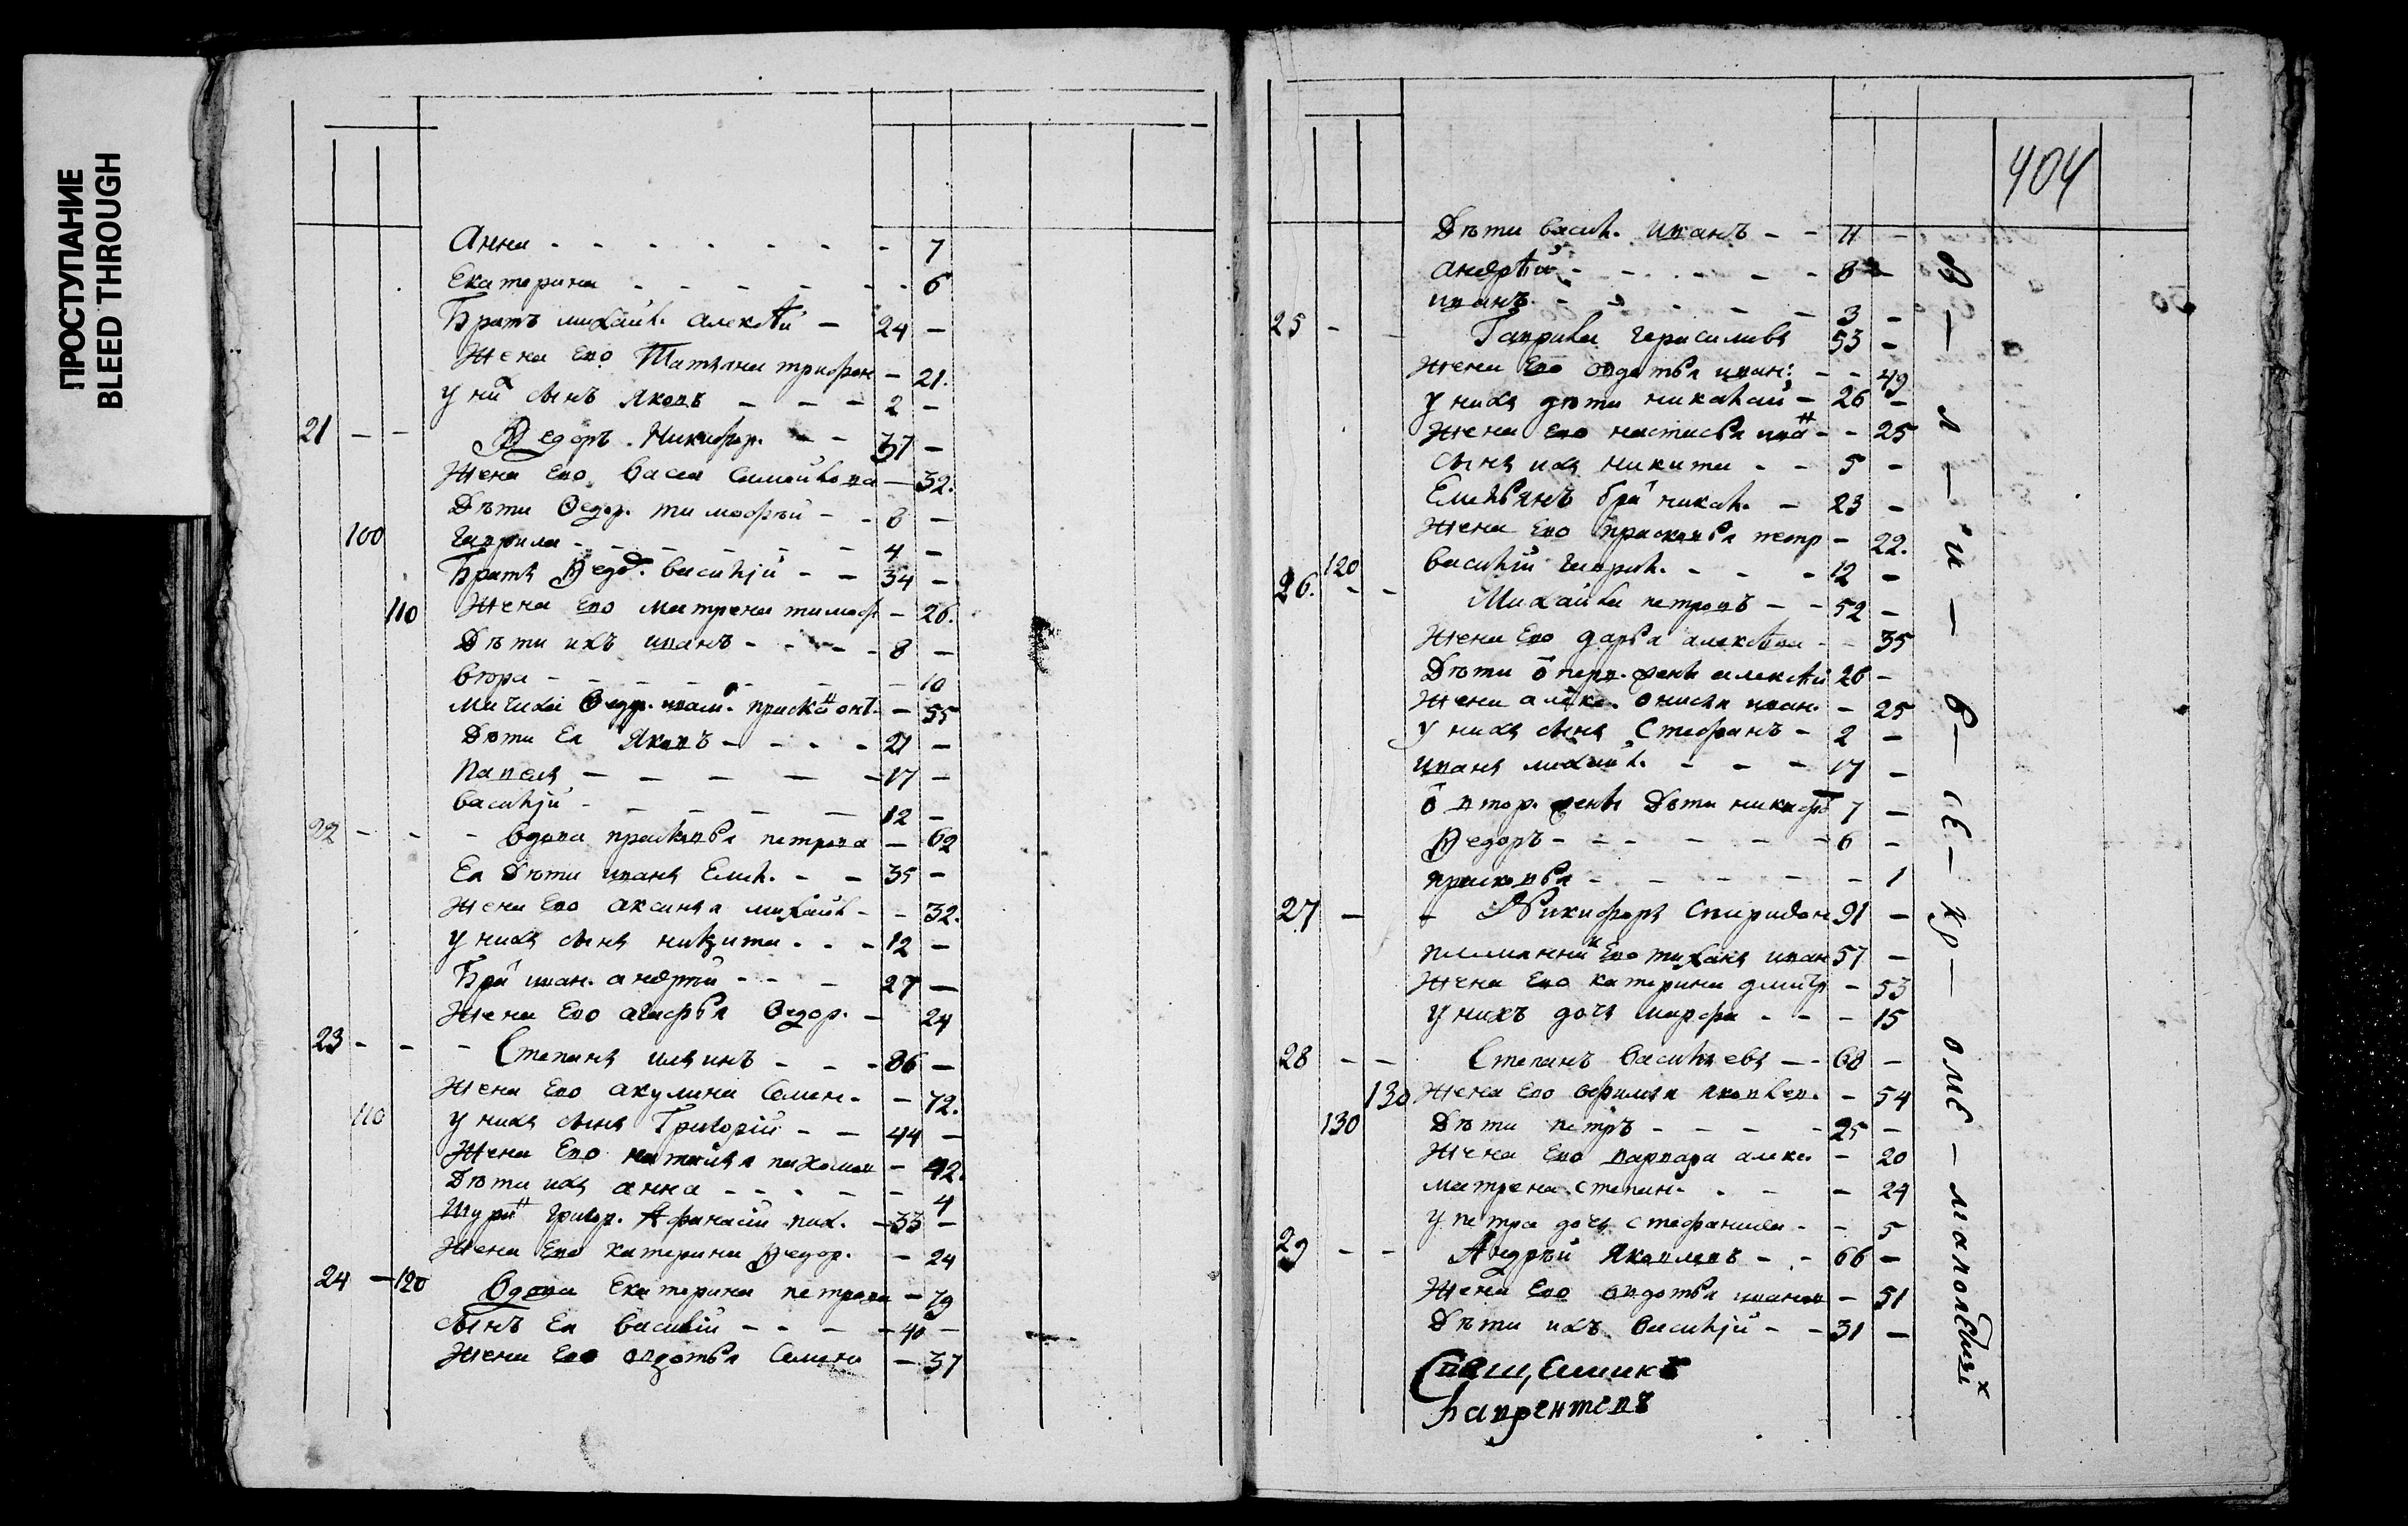 ПРОСТУПАНИЕ
BLEED THROUGH
Анна - 7
Екатерина - 6
Братъ михаил. алексѣй - 24 -
Жена Ево Татяна трифон - 21.
у ни^х сынъ Яковъ - 2 -
21 - - Ѳедоръ Никифор. - 37 -
Жена Ево васса Самойлова - 32.
Дѣти Ѳедор. тимофѣй - 6 -
100 гаврила - 4 -
Братъ Ѳедо^р. василій - 34 -
110 Жена Ево матрена тимоф - 26.
Дѣти ихъ иванъ - 8 -
- 10
Мачиха Ѳедр. - 55
Дѣти Ея Яковъ - 21 -
Павелъ - 17 -
василій - 12 -
22 - - вдова прасковья петрова - 62
Ея Дѣти иванъ Емел. - 35 -
Жена Ево аксинья михайл - 32.
у нихъ сынъ никита - 12 -
Бра^т иван. андрѣй - 27 -
Жена Ево агафья Ѳедор. - 24
23 - - Степанъ ильинъ - 86 -
Жена Ево акулина Семен. - 72.
110 у нихъ сынъ Григорій - 44 -
Жена Ево наталья пахомов - 42.
Дѣти ихъ анна - 4
Шури^н григор. Афанасій - 33 -
Жена Ево катерина Ѳедор. - 24
24 - 120 Вдова Екатерина петрова - 79
сынъ Ея василій - 40 -
Жена Ево авдотья Семено - 37
404
Дѣти васил. иванъ - 11 -
андрѣй - 8 -
иванъ - 3 -
25 - - Гаврила герасимовъ 53 -
Жена Ево авдотья иван. - 49
у нихъ дѣти николай - 26 -
Жена Ево настасья ива^н - 25
сынъ ихъ никита - 5 -
Емельянъ бра^т никол. - 23 -
Жена Ево прасковья петр - 22.
120 василій гаврил. - 12 -
26. - - Михайла петровъ - 52 -
Жена Ево дарья алексѣева - 35
Дѣти о^т перв. жены алексѣй 26 -
Жена алекс. онисья иван. - 25
у нихъ сынъ Стефанъ - 2 -
иванъ михаил. - 17 -
о^т втор. жены Дѣти никифо^р 7 -
Ѳедоръ - 6 -
прасковья - 1
27 - - Никифоръ Спиридон 91 -
племянни^к Ево тиханъ иван 57 -
Жена Ево катерина дмитр - 53
у нихъ дочь марфа - 15
28 - - Степанъ Васильевъ - 68 -
130 Жена Ево афимья яковлев. - 54
130 Дѣти петръ - 25 -
Жена Ево варвара алекс - 20
матрена степан. - 24
у петра дочь стефанида - 5
29 - - Андрѣй Яковлевъ - 66 -
Жена Ево авдотья иванов - 51
Дѣти ихъ василій - 31 -
Свещенникъ
Лаврентевъ
в — л — и — в — се — кр — оме — малолетны^х